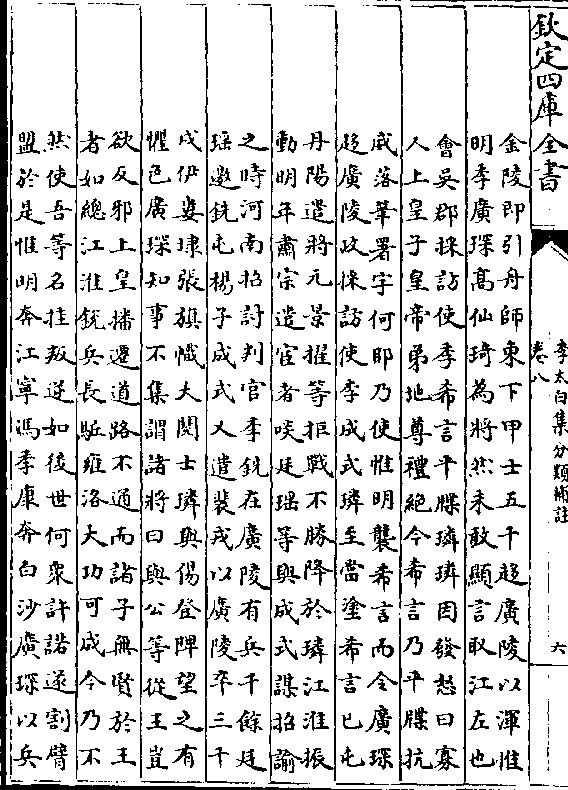 欽定四庫全書
李太白集分類補註
卷八
六
金陵即引舟師東下甲士五千趍廣陵以渾惟
明季廣琛髙仙琦為將然未敢顯言取江左也
會吳郡採訪使李希言平牒璘璘因發怒曰寡
人上皇子皇帝弟地尊禮絶今希言乃平牒抗
威落筆署字何耶乃使惟明襲希言而令廣琛
趍廣陵攻採訪使李成式璘至當塗希言已屯
丹陽遣將元景擢等拒戰不勝降於璘江淮振
動明年肅宗遣宦者啖廷瑶等與成式謀招諭
之時河南招討判官李銑在廣陵有兵千餘廷
瑶邀銑屯楊子成式又遣裴戎以廣陵卒三千
戍伊婁埭張旗幟大閱士璘與傷登陴望之有
懼色廣琛知事不集謂諸將曰與公等從王豈
欲反邪上皇播遷道路不通而諸子無賢於王
者如總江淮銳兵長驅雍洛大功可成今乃不
然使吾等名挂叛逆如後世何衆許諾遂割臂
盟於是惟明奔江寧馮季康奔白沙廣琛以兵